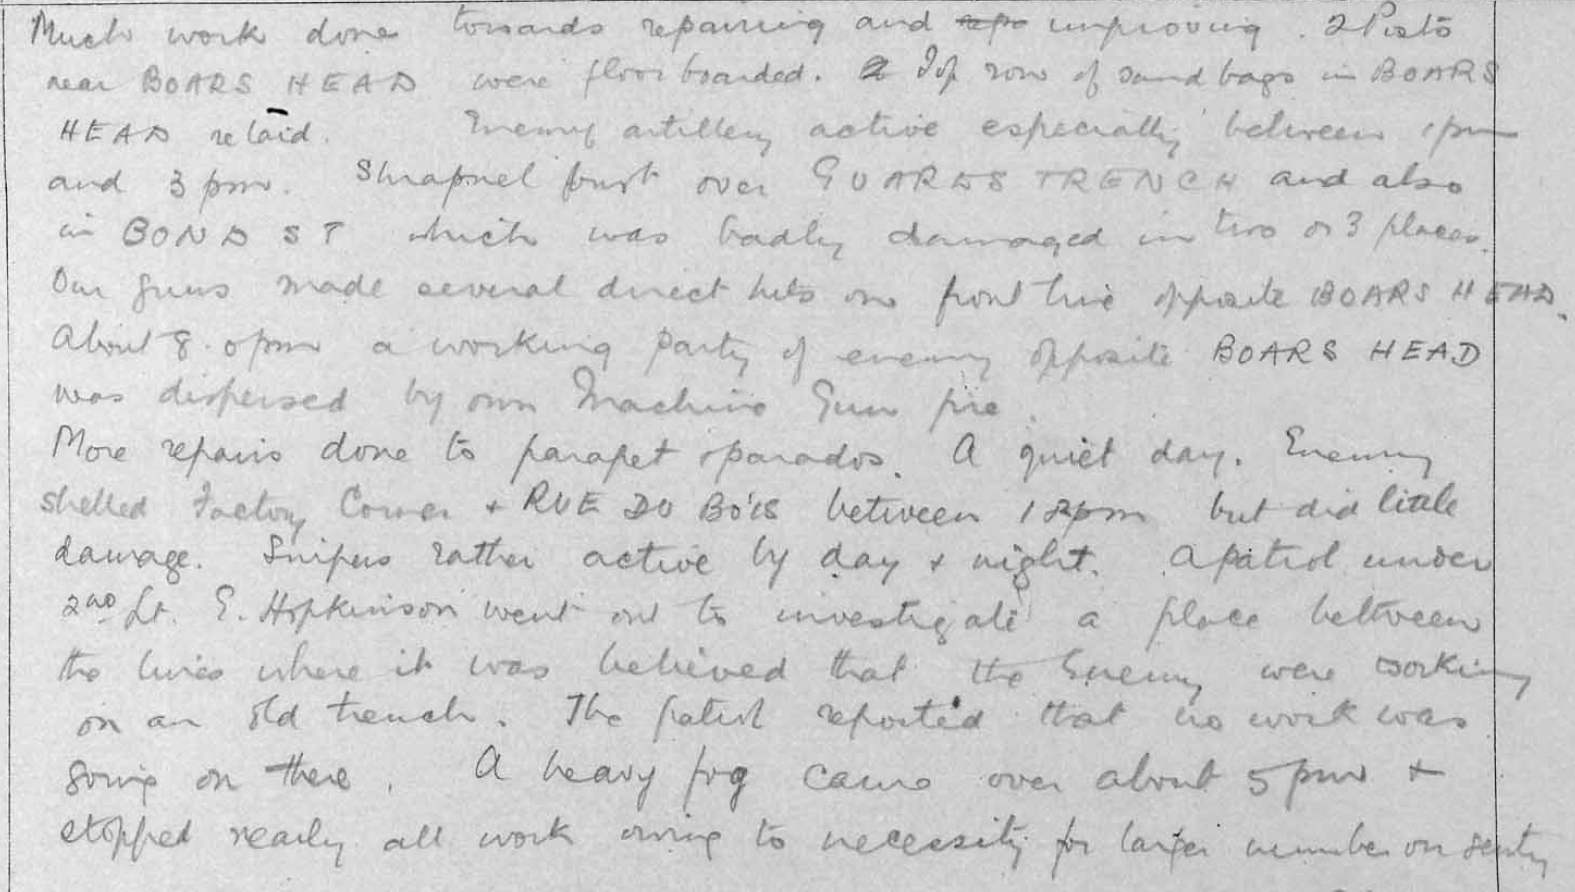 Much work done towards repairing and repo improving. 2 Posts
near BOARS HEAD were floor boarded. Top row of sand bags in BOARS
HEAD relaid. Enemy artillery active especially between 1pm
and 3 pm. Shrapnel burst over GUARDS TRENCH and also
in BOND ST which was badly damaged in two or 3 places.
Our guns made several direct hits on front line opposite BOARS HEAD.
About 8.0pm a working party of enemy opposite BOARS HEAD
was dispersed by our Machine Gun fire.
More repairs done to parapet & parados. A quiet day. Enemy
shelled Factory Corner + RUE DU BOIS between 12pm but did little
damage. Snipers rather active by day + night. A patrol under
2nd Lt. E. Hopkinson went out to investigate a place between
the lines where it was believed that the Enemy were working
on an old trench. The patrol reported that no work was
going on there. A heavy fog came over about 5pm +
stopped nearly all work owing to necessity for larger number on sentry